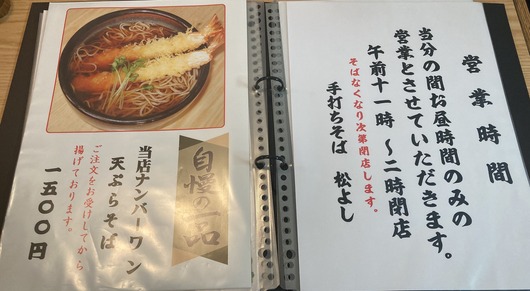 営業時間
当分の間お昼時間のみの
営業とさせていただきます。
午前十一時 〜二時閉店
そばなくなり次第閉店します。
手打ちそば 松よし
自慢の一品
当店ナンバーワン
天ぷらそば
ご注文をお受けしてから
揚げております。
一五〇〇円